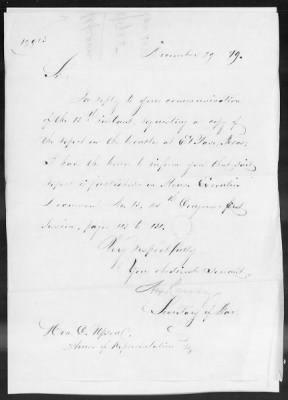 December 29 79.
Sir
In reply to your communication
of the 12th instant, requesting a copy of
the report on the trouble at El Paso, Texas,
I have the honor to inform you that said
report is published in House Executive
Document No. 93, 45th Congress first
Session, pages
Very respectfully
Your obedient servant,
Secretary of War.
Hon. C. Upson,
House of Representatives